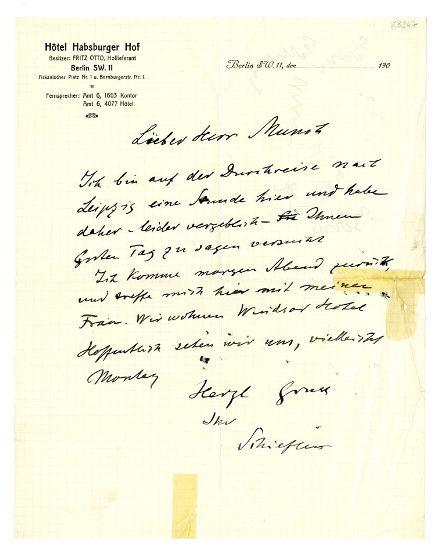 K3247
Hôtel Habsburger Hof
Besitzer: FRITZ OTTO, Hoflieferant
Berlin SW. 11
Askanischer Platz Nr. 1 u. Bernburgerstr. Nr. 1.
Fernsprecher: Amt 6, 1603 Kontor
Amt 6, 4077 Hôtel
Berlin S.W. 11, den 190
Lieber Herr Munch
Ich bin auf der Durchreise nach
Leipzig eine Stunde hier und habe
daher – leider vergeblich – Ihnen
Guten Tag zu sagen versucht
Ich komme morgen Abend zurück,
und treffe mich hier mit meiner
Frau. Wir wohnen Windsor Hotel
Hoffentlich sehen wir uns, vielleicht
Montag
Herzl Gruss
Ihr
Schiefler